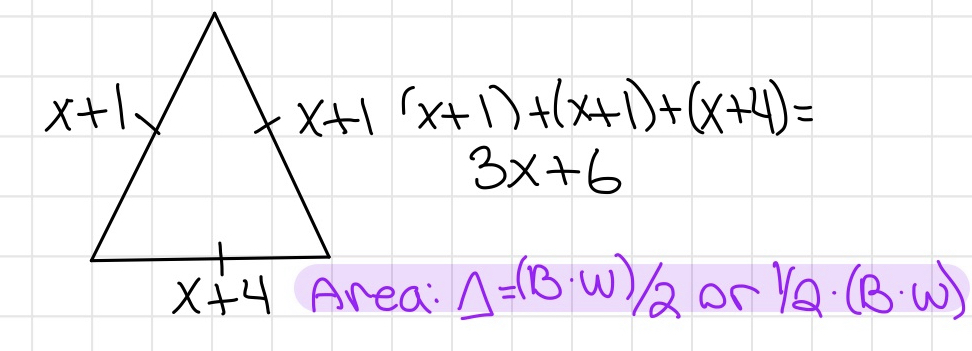 x+1
x+1 (x+1)+(x+1)+(x+4)=
3x+6
x+4
Area: △=(B·W)/2 or 1/2·(B·W)